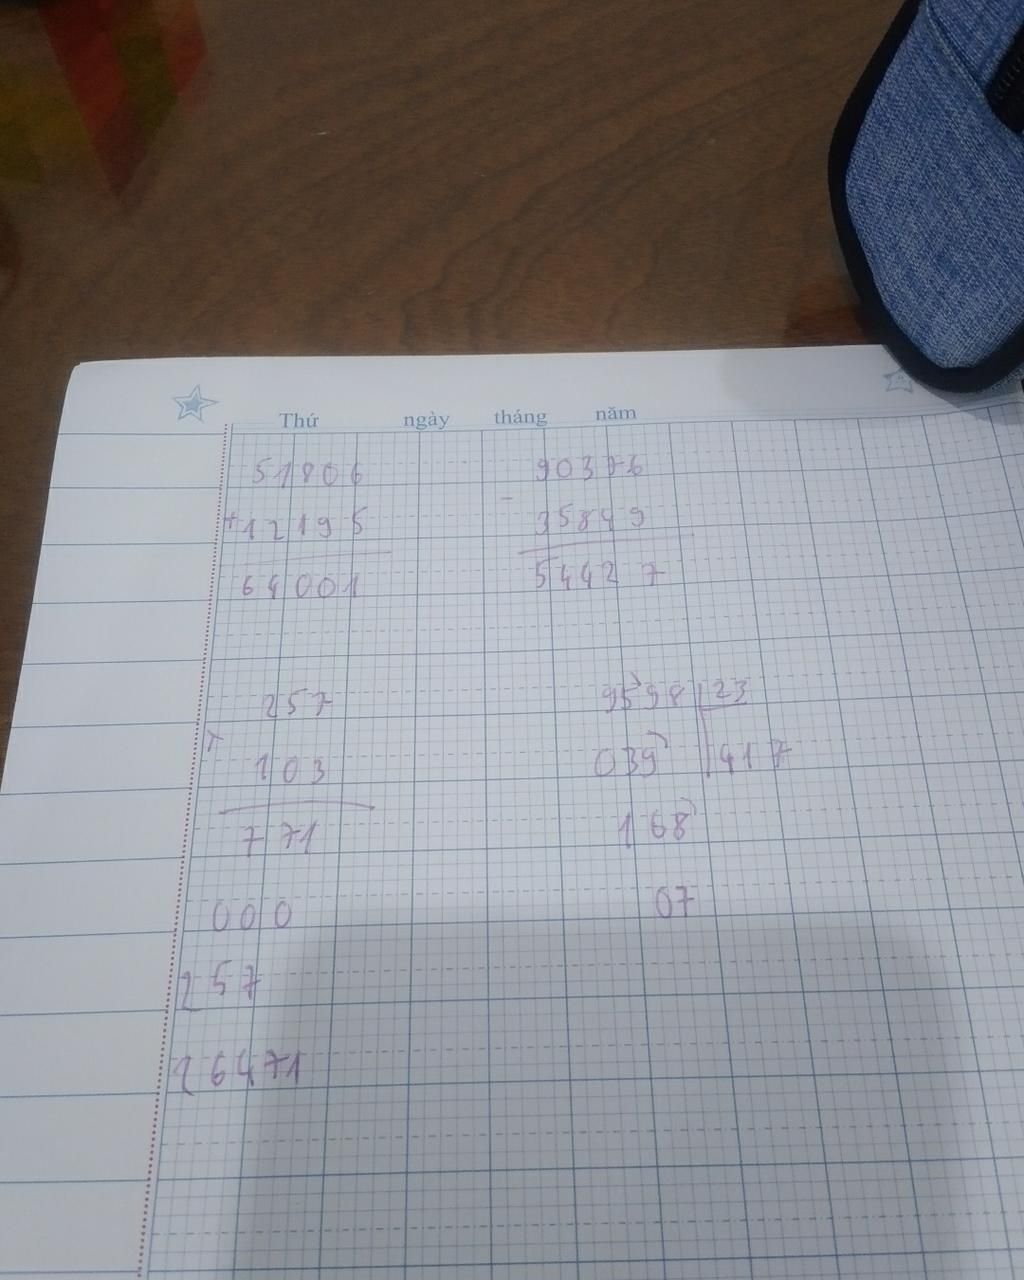 Thứ ngày tháng năm
51806
+ 12195
64001
90376
- 35849
54427
257
×
103
771
000
257
26471
9598 | 23
039 | 417
168
07